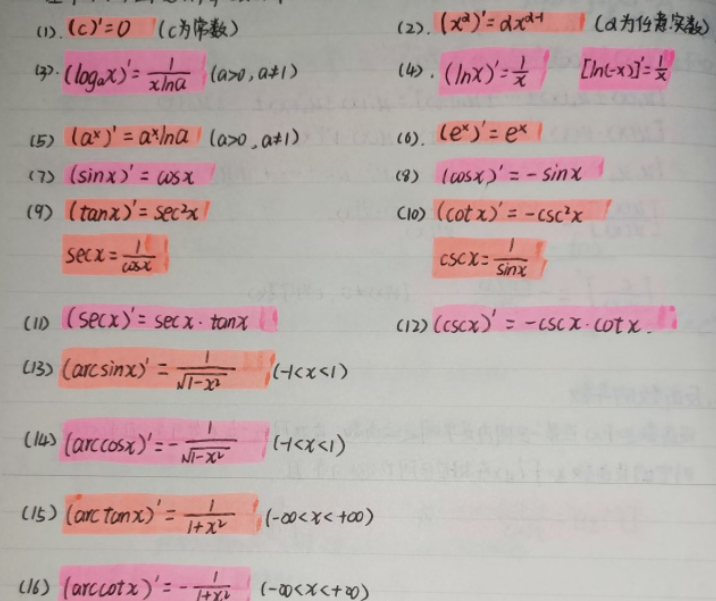 (1). (c)'=0 (c为常数) (2). (x^α)'=αx^(α-1) (α为任意实数)
(3). (logₐx)'=1/(xlna) (a>0, a≠1) (4). (lnx)'=1/x [ln(-x)]'=1/x
(5) (a^x)'=a^x lna (a>0, a≠1) (6). (e^x)'=e^x
(7) (sinx)'=cosx (8) (cosx)'=-sinx
(9) (tanx)'=sec²x (10) (cotx)'=-csc²x
secx=1/cosx cscx=1/sinx
(11) (secx)'=secx·tanx (12) (cscx)'=-cscx·cotx.
(13) (arcsinx)'=1/√(1-x²) (-1<x<1)
(14) (arccosx)'=-1/√(1-x²) (-1<x<1)
(15) (arctanx)'=1/(1+x²) (-∞<x<+∞)
(16) (arccotx)'=-1/(1+x²) (-∞<x<+∞)